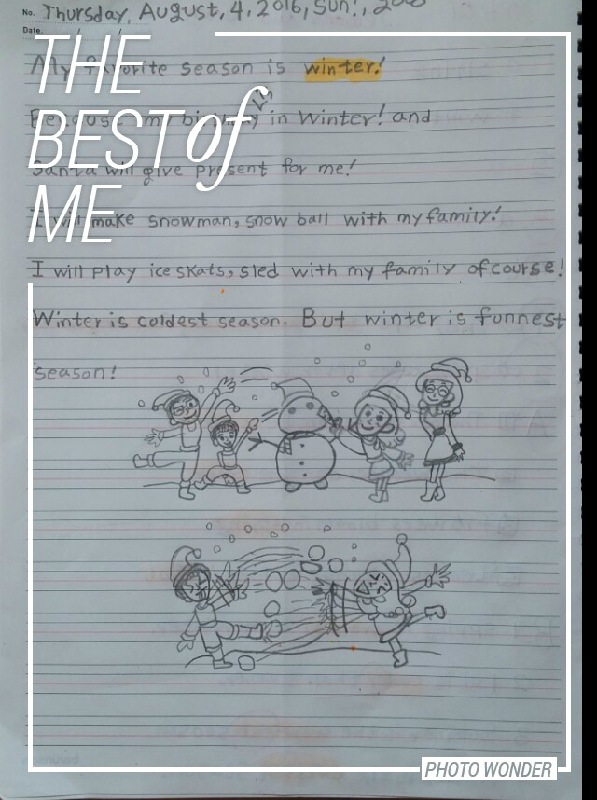 No. Thursday, August, 4, 2016, Sun!,
Date.
THE
BEST of
ME
My favorite season is winter!
Because my birthday in winter! and
Santa will give present for me!
I will make snowman, snow ball with my family!
I will play ice skats, sled with my family of course!
Winter is coldest season. But winter is funnest
season!
PHOTO WONDER